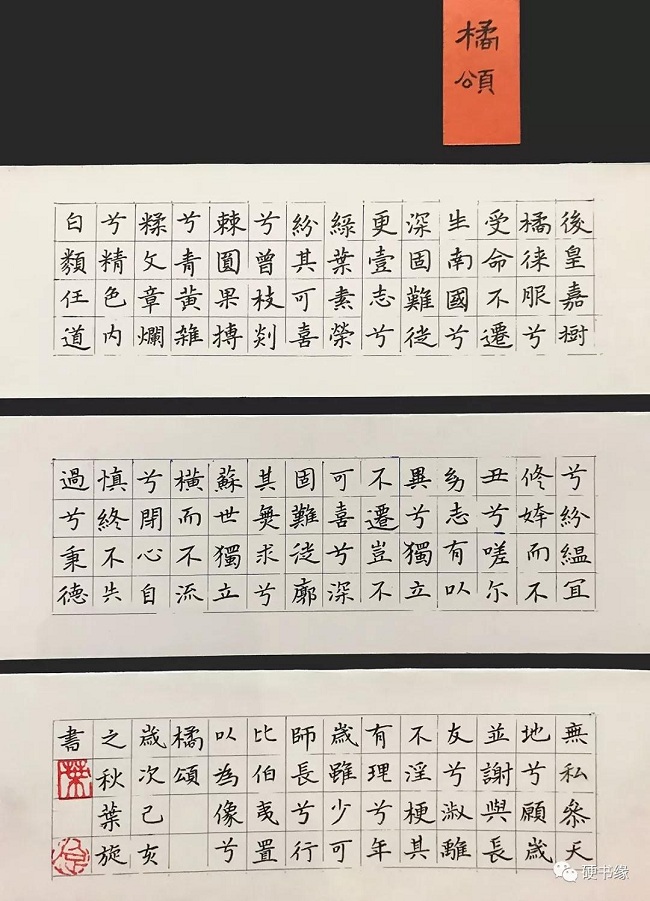 橘頌
後皇嘉樹
橘徠服兮
受命不遷
生南國兮
深固難徙
更壹志兮
綠葉素榮
紛其可喜
兮曾枝剡
棘圓果摶
兮青黃雜
糅文章爛
兮精色內
白類任道
兮紛緼宜
修姱而不
丑兮嗟尔
幼志有以
異兮獨立
不遷豈不
可喜兮深
固難徙廓
其無求兮
蘇世獨立
橫而不流
兮閉心自
慎終不失
過兮秉德
無私參天
地兮願歲
並謝與長
友兮淑離
不淫梗其
有理兮年
歲雖少可
師長兮行
比伯夷置
以為像兮
橘頌
歲次己亥
之秋葉旋
書
硬书缘